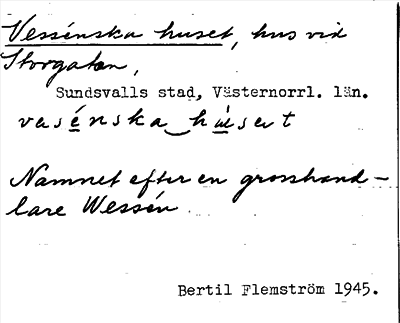 Vessénska huset, hus vid
Storgatan,
Sundsvalls stad, Västernorrl. län.
vasénska‿hùset
Namnet efter en grosshand-
lare Wessén
Bertil Flemström 1945.